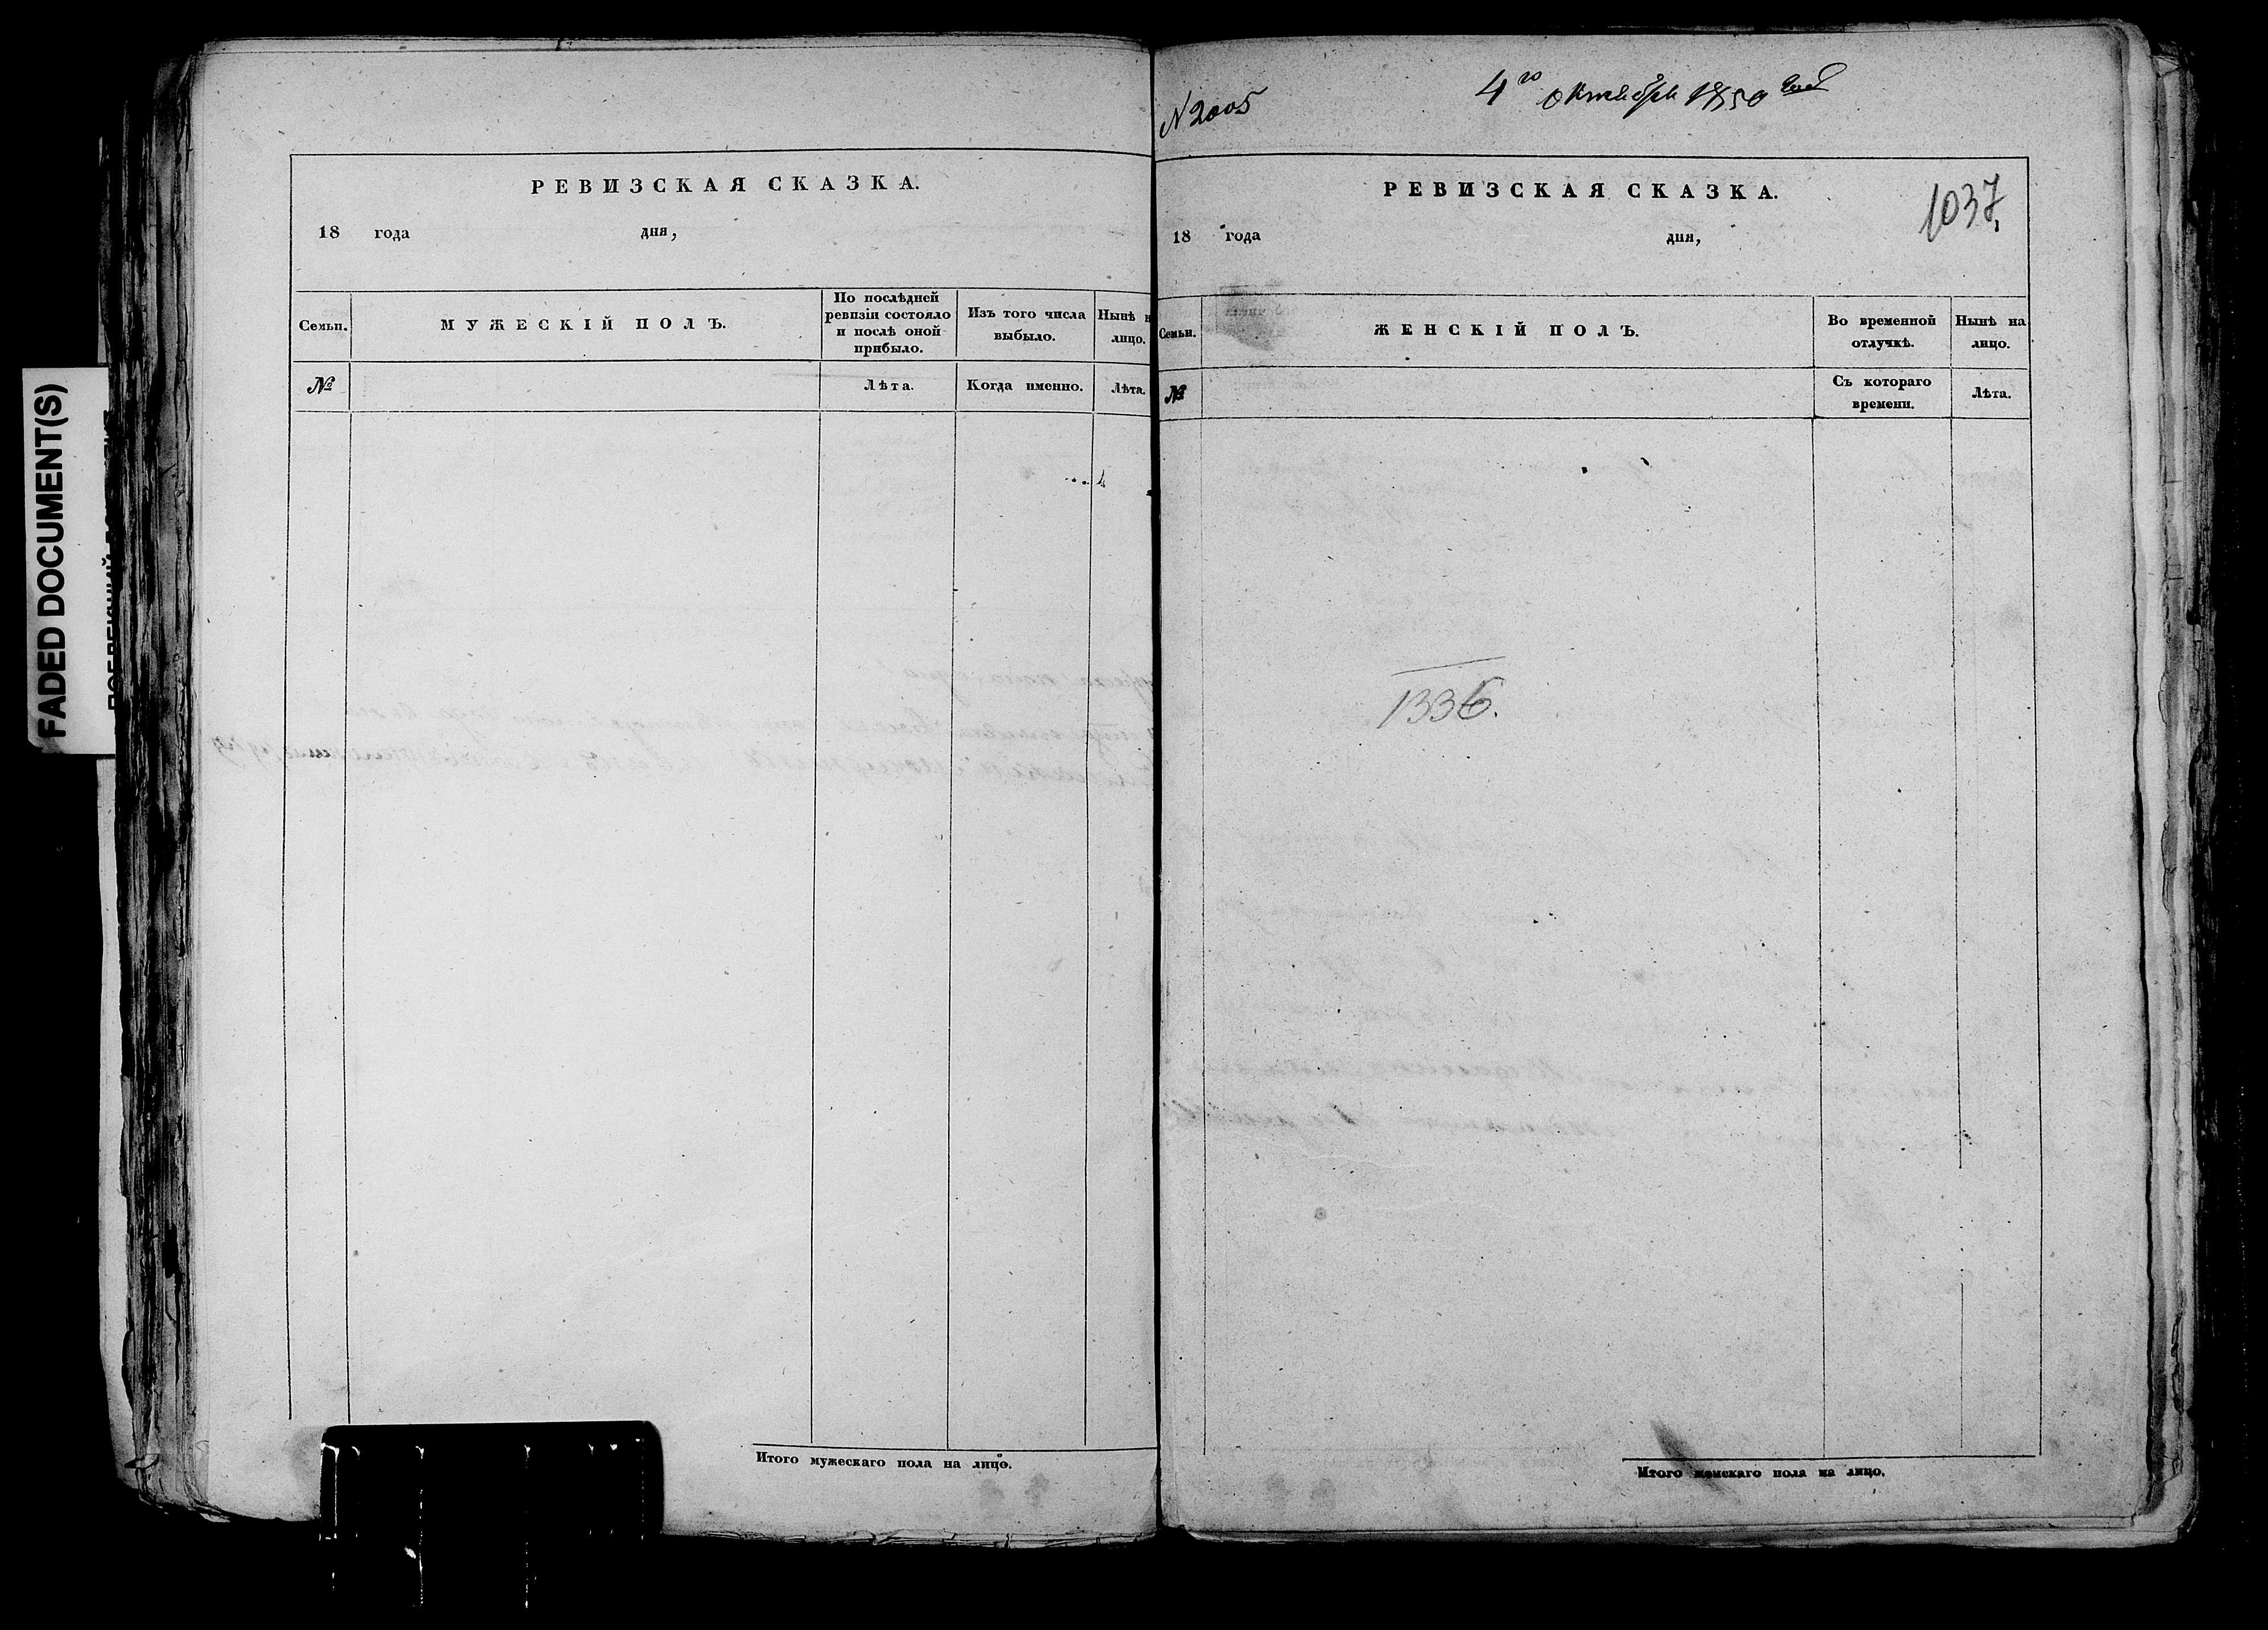 FADED DOCUMENT(S)
РЕВИЗСКАЯ СКАЗКА.
18 года дня,
Семьи.
МУЖЕСКІЙ ПОЛЪ.
По послѣдней
ревизіи состояло
и послѣ оной
прибыло.
Изъ того числа
выбыло.
Нынѣ н
лицо.
№
Лѣта.
Когда именно.
Лѣта.
Итого мужескаго пола на лицо.
N 2005
4го Октября 1850 года
РЕВИЗСКАЯ СКАЗКА.
1037.
18 года дня,
Семьи.
ЖЕНСКІЙ ПОЛЪ.
Во временной
отлучкѣ.
Нынѣ на
лицо.
№
Съ котораго
времени.
Лѣта.
1336.
Итого женскаго пола на лицо.